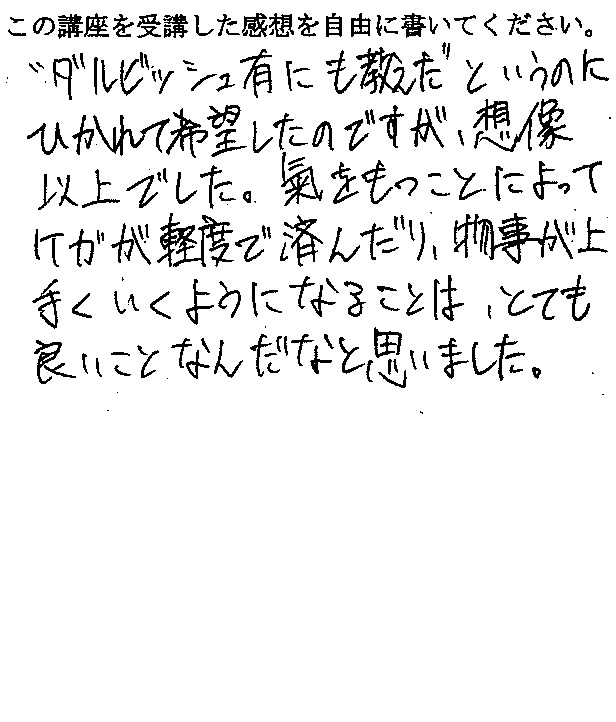 この講座を受講した感想を自由に書いてください。
"ダルビッシュ有にも教えだ"というのに
ひかれて希望したのですが、想像
以上でした。氣をもつことによって
ケガが軽度で済んだり、物事が上
手くいくようになることは、とても
良いことなんだなと思いました。